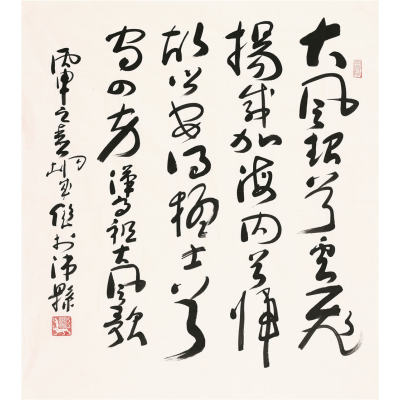 大風起兮雲飛
揚威加海内兮歸
故鄉安得猛士兮
守四方漢高祖大風歌
丙申之春於沛縣